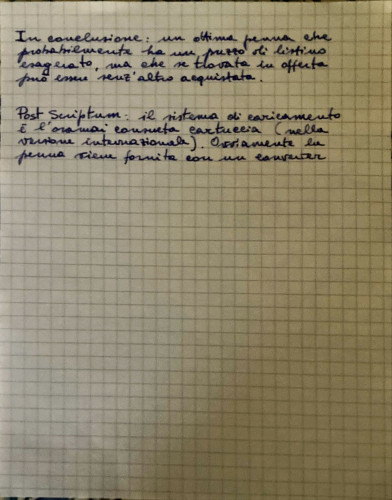 In conclusione: un ottima penna che
probabilmente ha un prezzo di listino
esagerato, ma che se trovata in offerta
può esser senz'altro acquistata.
Post Scriptum: il sistema di caricamento
è l'oramai consueta cartuccia (nella
versione internazionale). Ovviamente la
penna viene fornita con un converter